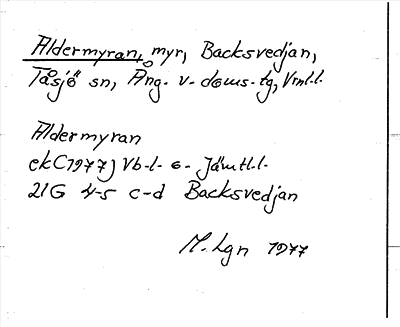 Aldermyran, myr, Backsvedjan,
Tåsjö sn, Ång. v. doms-tg, Vrnl.l.
Aldermyran
ek(1977) Vb-l- o- Jämtl.l.
21G 4-5 c-d Backsvedjan
M. Lgn 1977